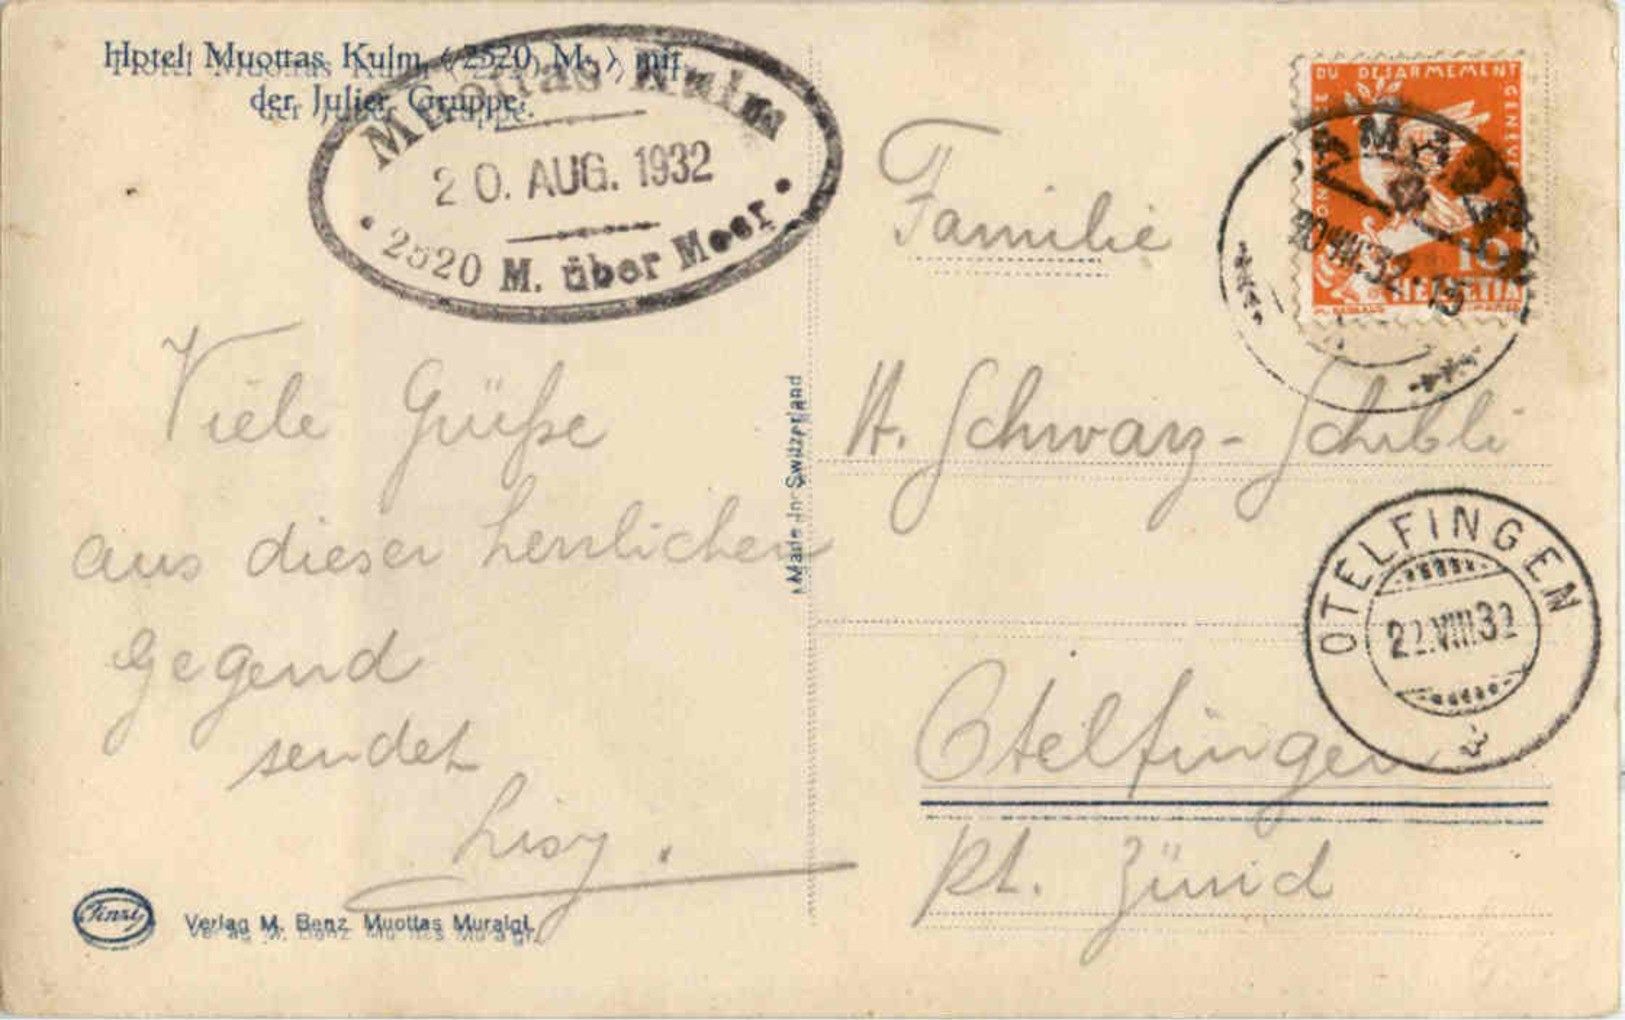 Hotel Muottas Kulm, (2520 M.) mit
der Julier Gruppe.
Muottas Kulm
20. AUG. 1932
2520 M. über Meer
Viele Grüße
aus dieser herrlichen
Gegend
sendet
Lisy.
Finzi
Verlag M. Benz Muottas Muraigl.
Made in Switzerland
DU DESARMEMENT
GENEVE
10
HELVETIA
20.VIII.32.-15
Familie
H. Schwarz-Schibli
OTELFINGEN
22.VIII.32
Otelfingen
Kt. Zürich